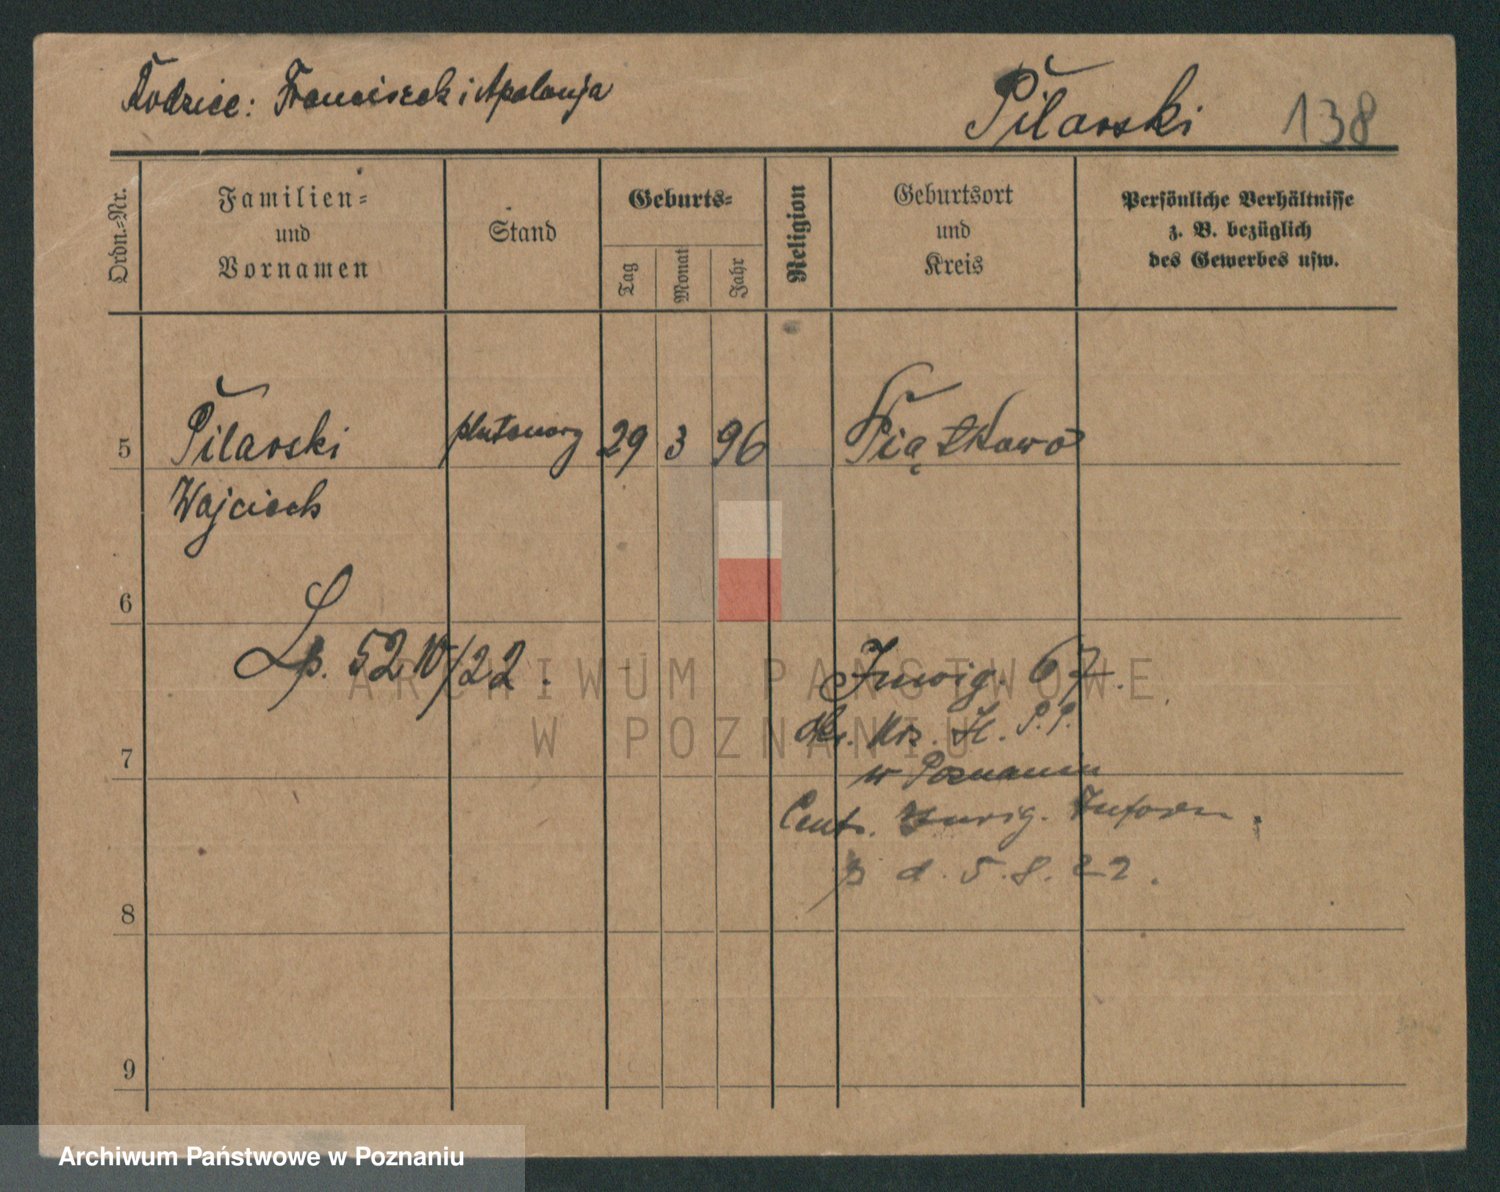 Rodzice: Franciszek i Apolonja
Pilarski 138
Ordn.=Nr.
Familien=
und
Vornamen
Stand
Geburts=
Tag
Monat
Jahr
Religion
Geburtsort
und
Kreis
Persönliche Verhältnisse
z. B. bezüglich
des Gewerbes usw.
5 Pilarski plutonowy 29 3 96 Piątkowo
Wojciech
6
Lp. 52 IV/22.
Inwig. 67.
H. P.P.
7
w Poznaniu
Centr. Inwig. Inform.
p d. 5.8.22.
8
9
ARCHIWUM PAŃSTWOWE
W POZNANIU
Archiwum Państwowe w Poznaniu